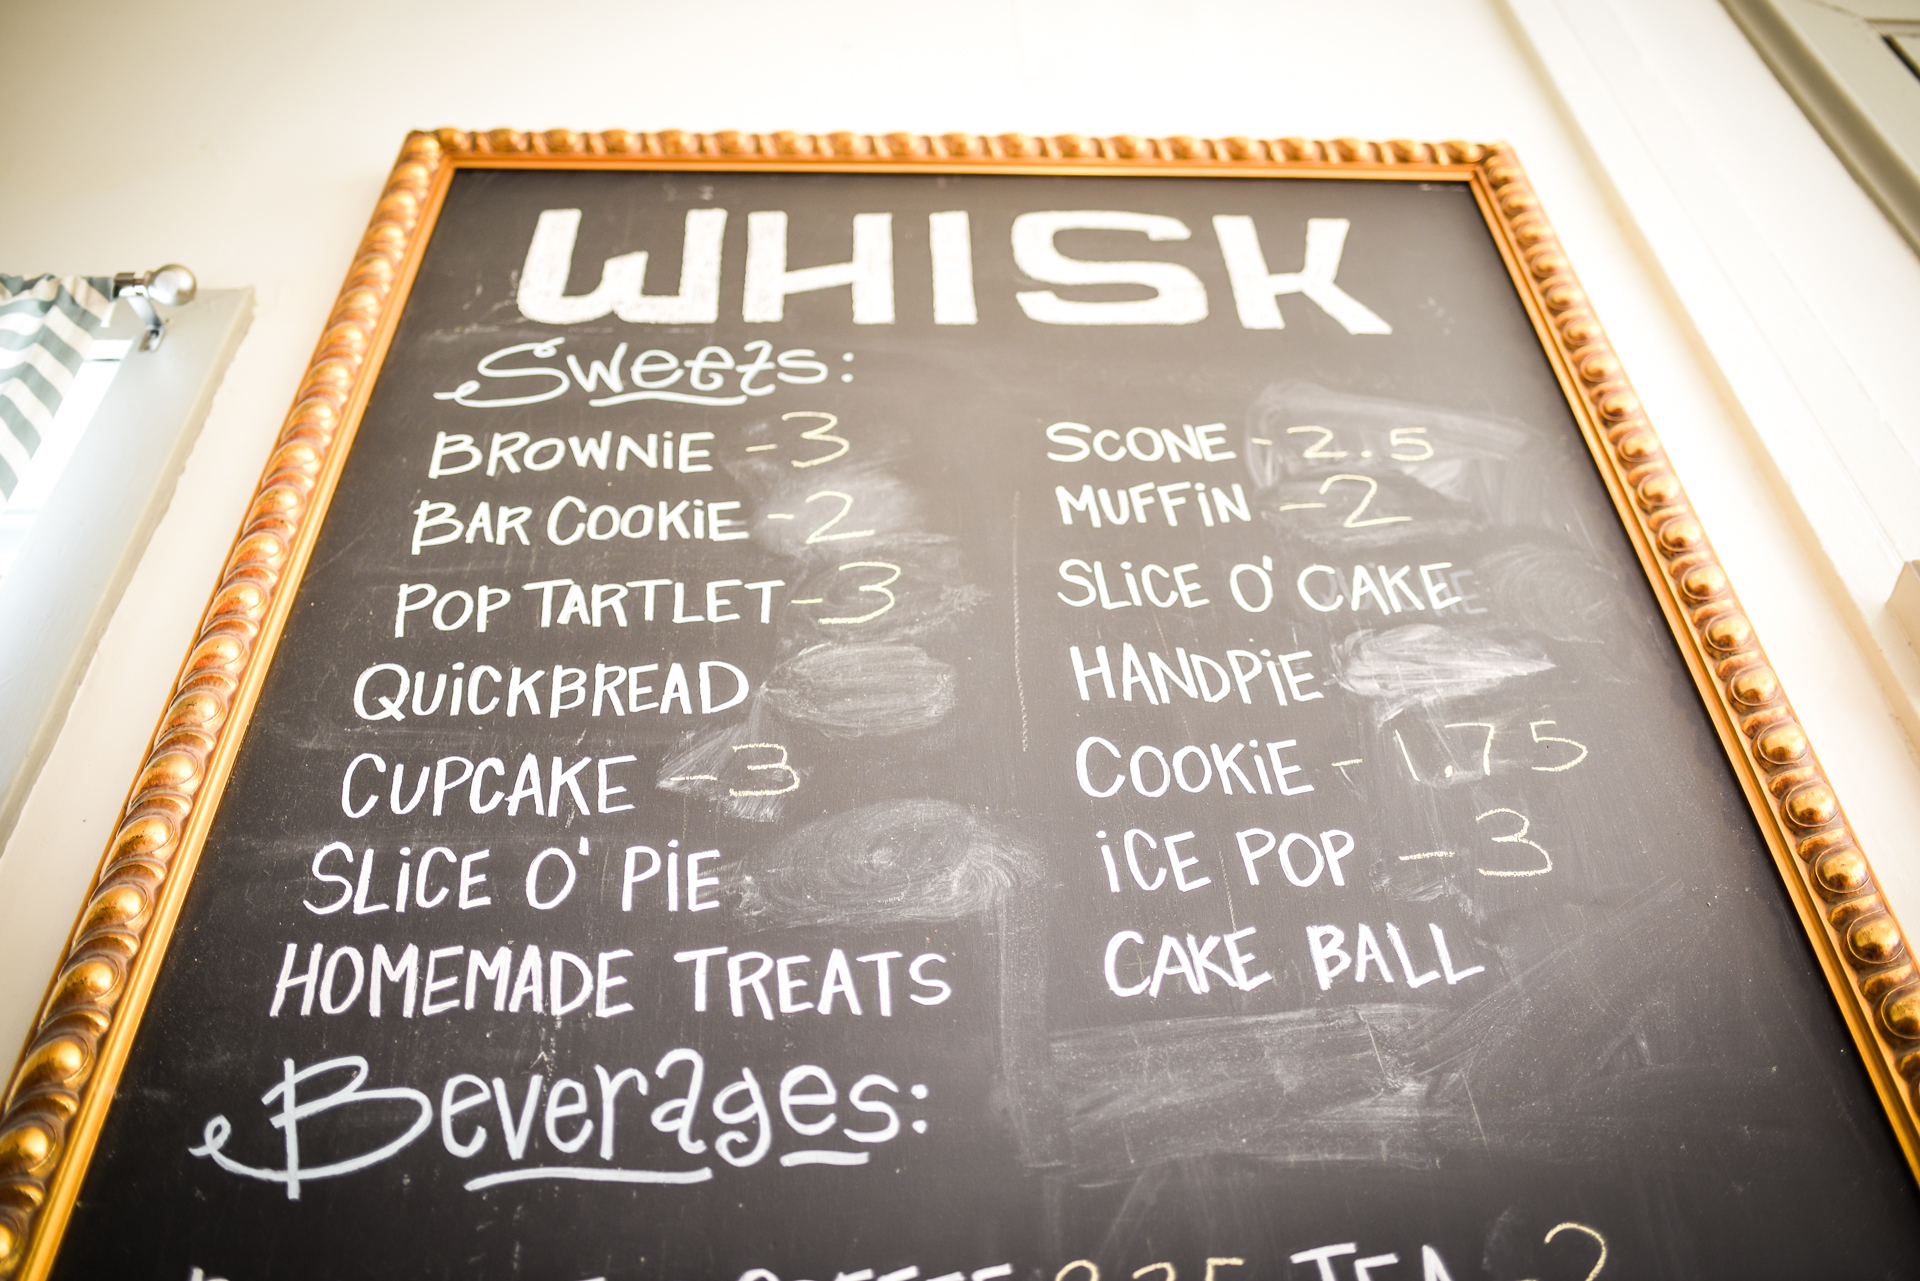 WHISK
Sweets:
BROWNiE - 3
BAR COOKiE - 2
POP TARTLET - 3
QUiCKBREAD
CUPCAKE - 3
SLiCE O' PiE
HOMEMADE TREATS
SCONE - 2.5
MUFFiN - 2
SLiCE O' CAKE
HANDPiE
COOKiE - 1.75
iCE POP - 3
CAKE BALL
Beverages:
COFFEE 2.25 TEA - 2